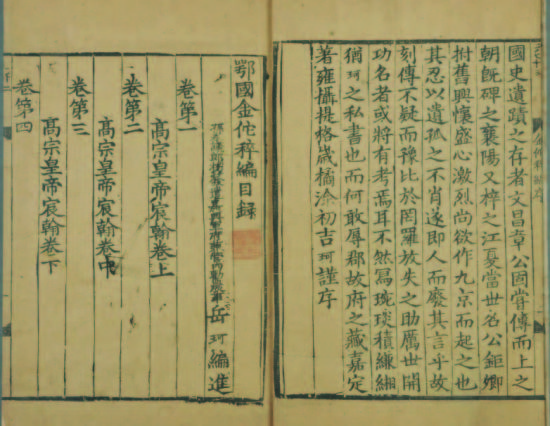 國史遺蹟之存者文昌章公固嘗傳而上之
朝旣碑之襄陽又梓之江夏當世名公鉅卿
拊舊興懷盛心激烈尚欲作九京而起之也
其忍以遺孤之不肖遂即人而廢其言乎故
刻傳不疑而豫比於罔羅放失之助厲世開
功名者或將有考焉耳不然冩琬琰積縑緗
猶珂之私書也而何敢辱郡故府之藏嘉定
著雍攝提格歲橘涂初吉珂謹序
鄂國金佗稡編目録
岳珂編進
卷第一
髙宗皇帝宸翰卷上
卷第二
髙宗皇帝宸翰卷中
卷第三
髙宗皇帝宸翰卷下
卷第四